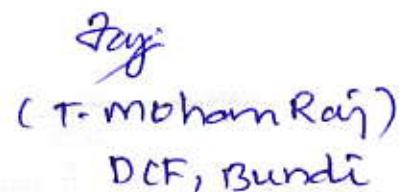 (T. Mohan Raj)
DCF, Bundi